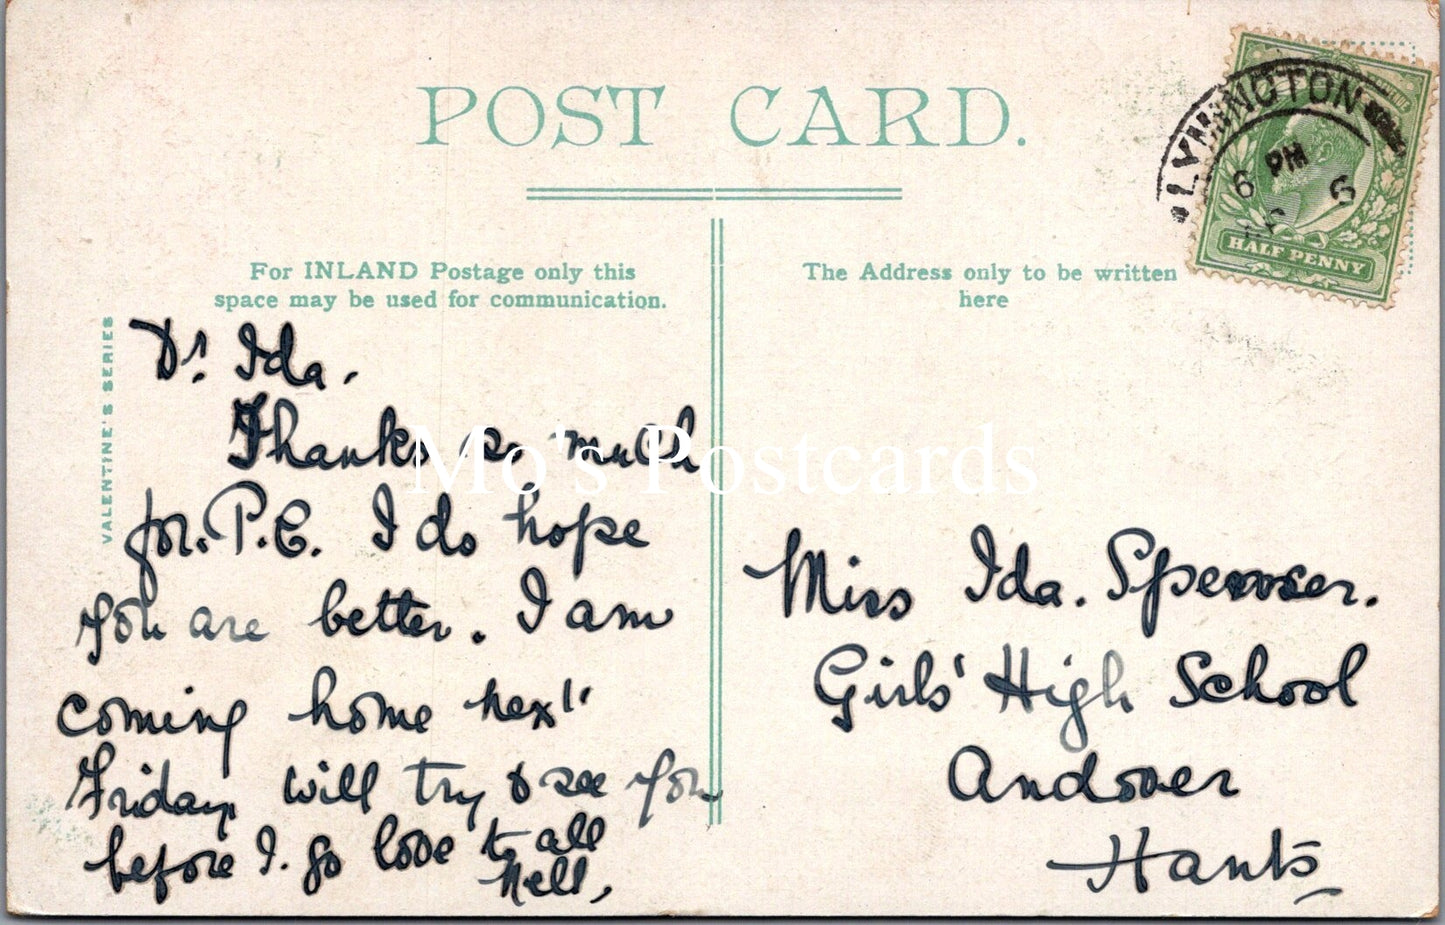 POST CARD.
LYMINGTON
6 PM
6
HALF PENNY
For INLAND Postage only this
space may be used for communication.
The Address only to be written
here
VALENTINE'S SERIES
Dr. Ida.
Thanks so much
for. P.C. I do hope
you are better. I am
coming home next
Friday will try to see you
before I. go love to all
Nell,
Mo's Postcards
Miss Ida. Spenser.
Girls' High School
Andover
Hants